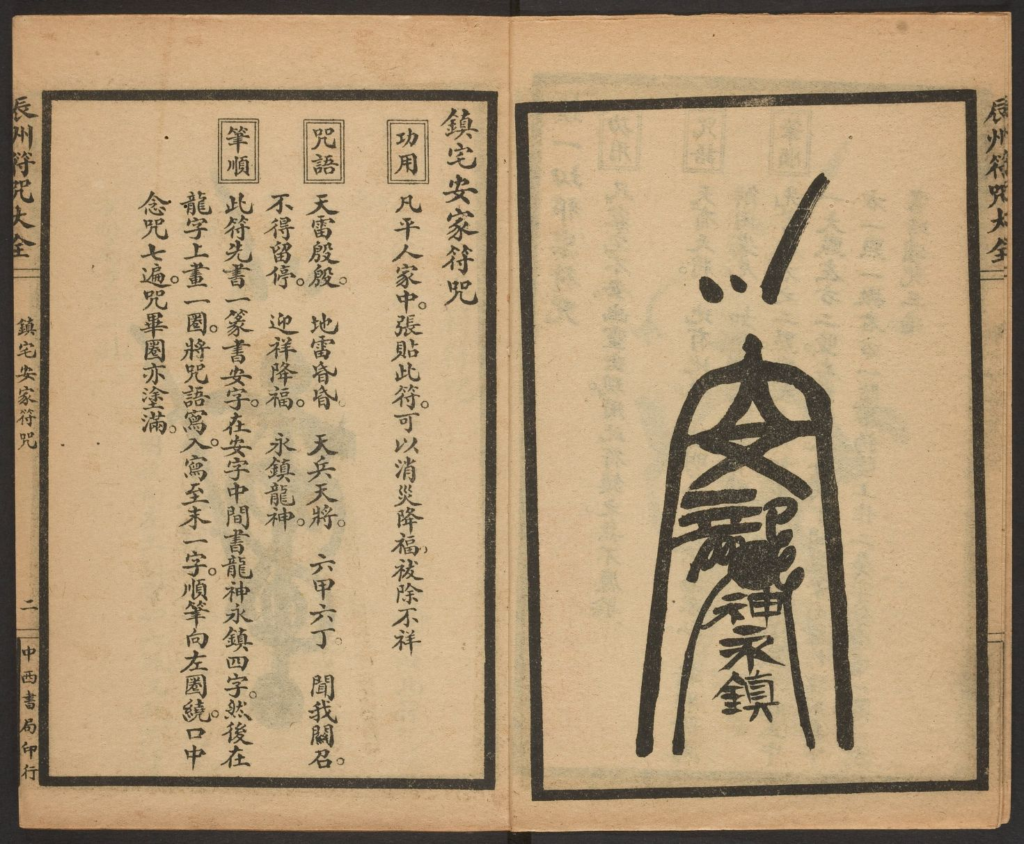 辰州符咒大全
安
龍
神永鎮
鎮宅安家符咒
功用
凡平人家中。張貼此符。可以消災降福。祓除不祥
咒語
天雷殷殷。　地雷昏昏　天兵天將。　六甲六丁。　聞我關召。
不得留停。　迎祥降福。　永鎮龍神。
筆順
此符先書一篆書安字。在安字中間書龍神永鎮四字。然後在
龍字上畫一圈。將咒語寫入。寫至末一字。順筆向左圈繞。口中
念咒七遍。咒畢圈亦塗滿。
辰州符咒大全
鎮宅安家符咒
二
中西書局印行